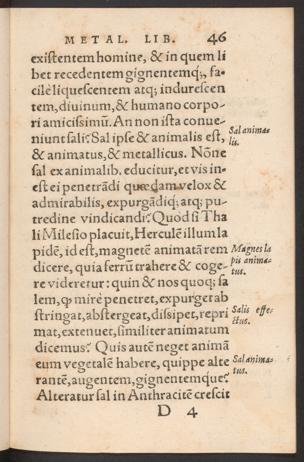 METAL. LIB. 46
existentem homine, & in quem li
bet recedentem gignentemq́;, fa-
cilè liquescentem atq; indurescen
tem, diuinum, & humano corpo-
ri amicissimū. An non ista conue-
niunt sali? Sal ipse & animalis est,
& animatus, & metallicus. Nōne
sal ex animalib. educitur, et vis in-
est ei penetrādi quædam velox &
admirabilis, expurgādiq́; atq; pu-
tredine vindicandi? Quod si Tha
li Milesio placuit, Herculē illum la
pidē, id est, magnetē animatā rem
dicere, quia ferrū trahere & coge-
re videretur: quin & nos quoq; sa
lem, ꝙ mirè penetret, expurget ab
stringat, abstergeat, dissipet, repri
mat, extenuet, similiter animatum
dicemus? Quis autē neget animā
eum vegetalē habere, quippe alte
rantē, augentem, gignentemque?
Alteratur sal in Anthracitē crescit
D 4
Sal anima-
lis.
Magnes la
pis anima-
tus.
Salis effe-
ctus.
Sal anima-
tus.